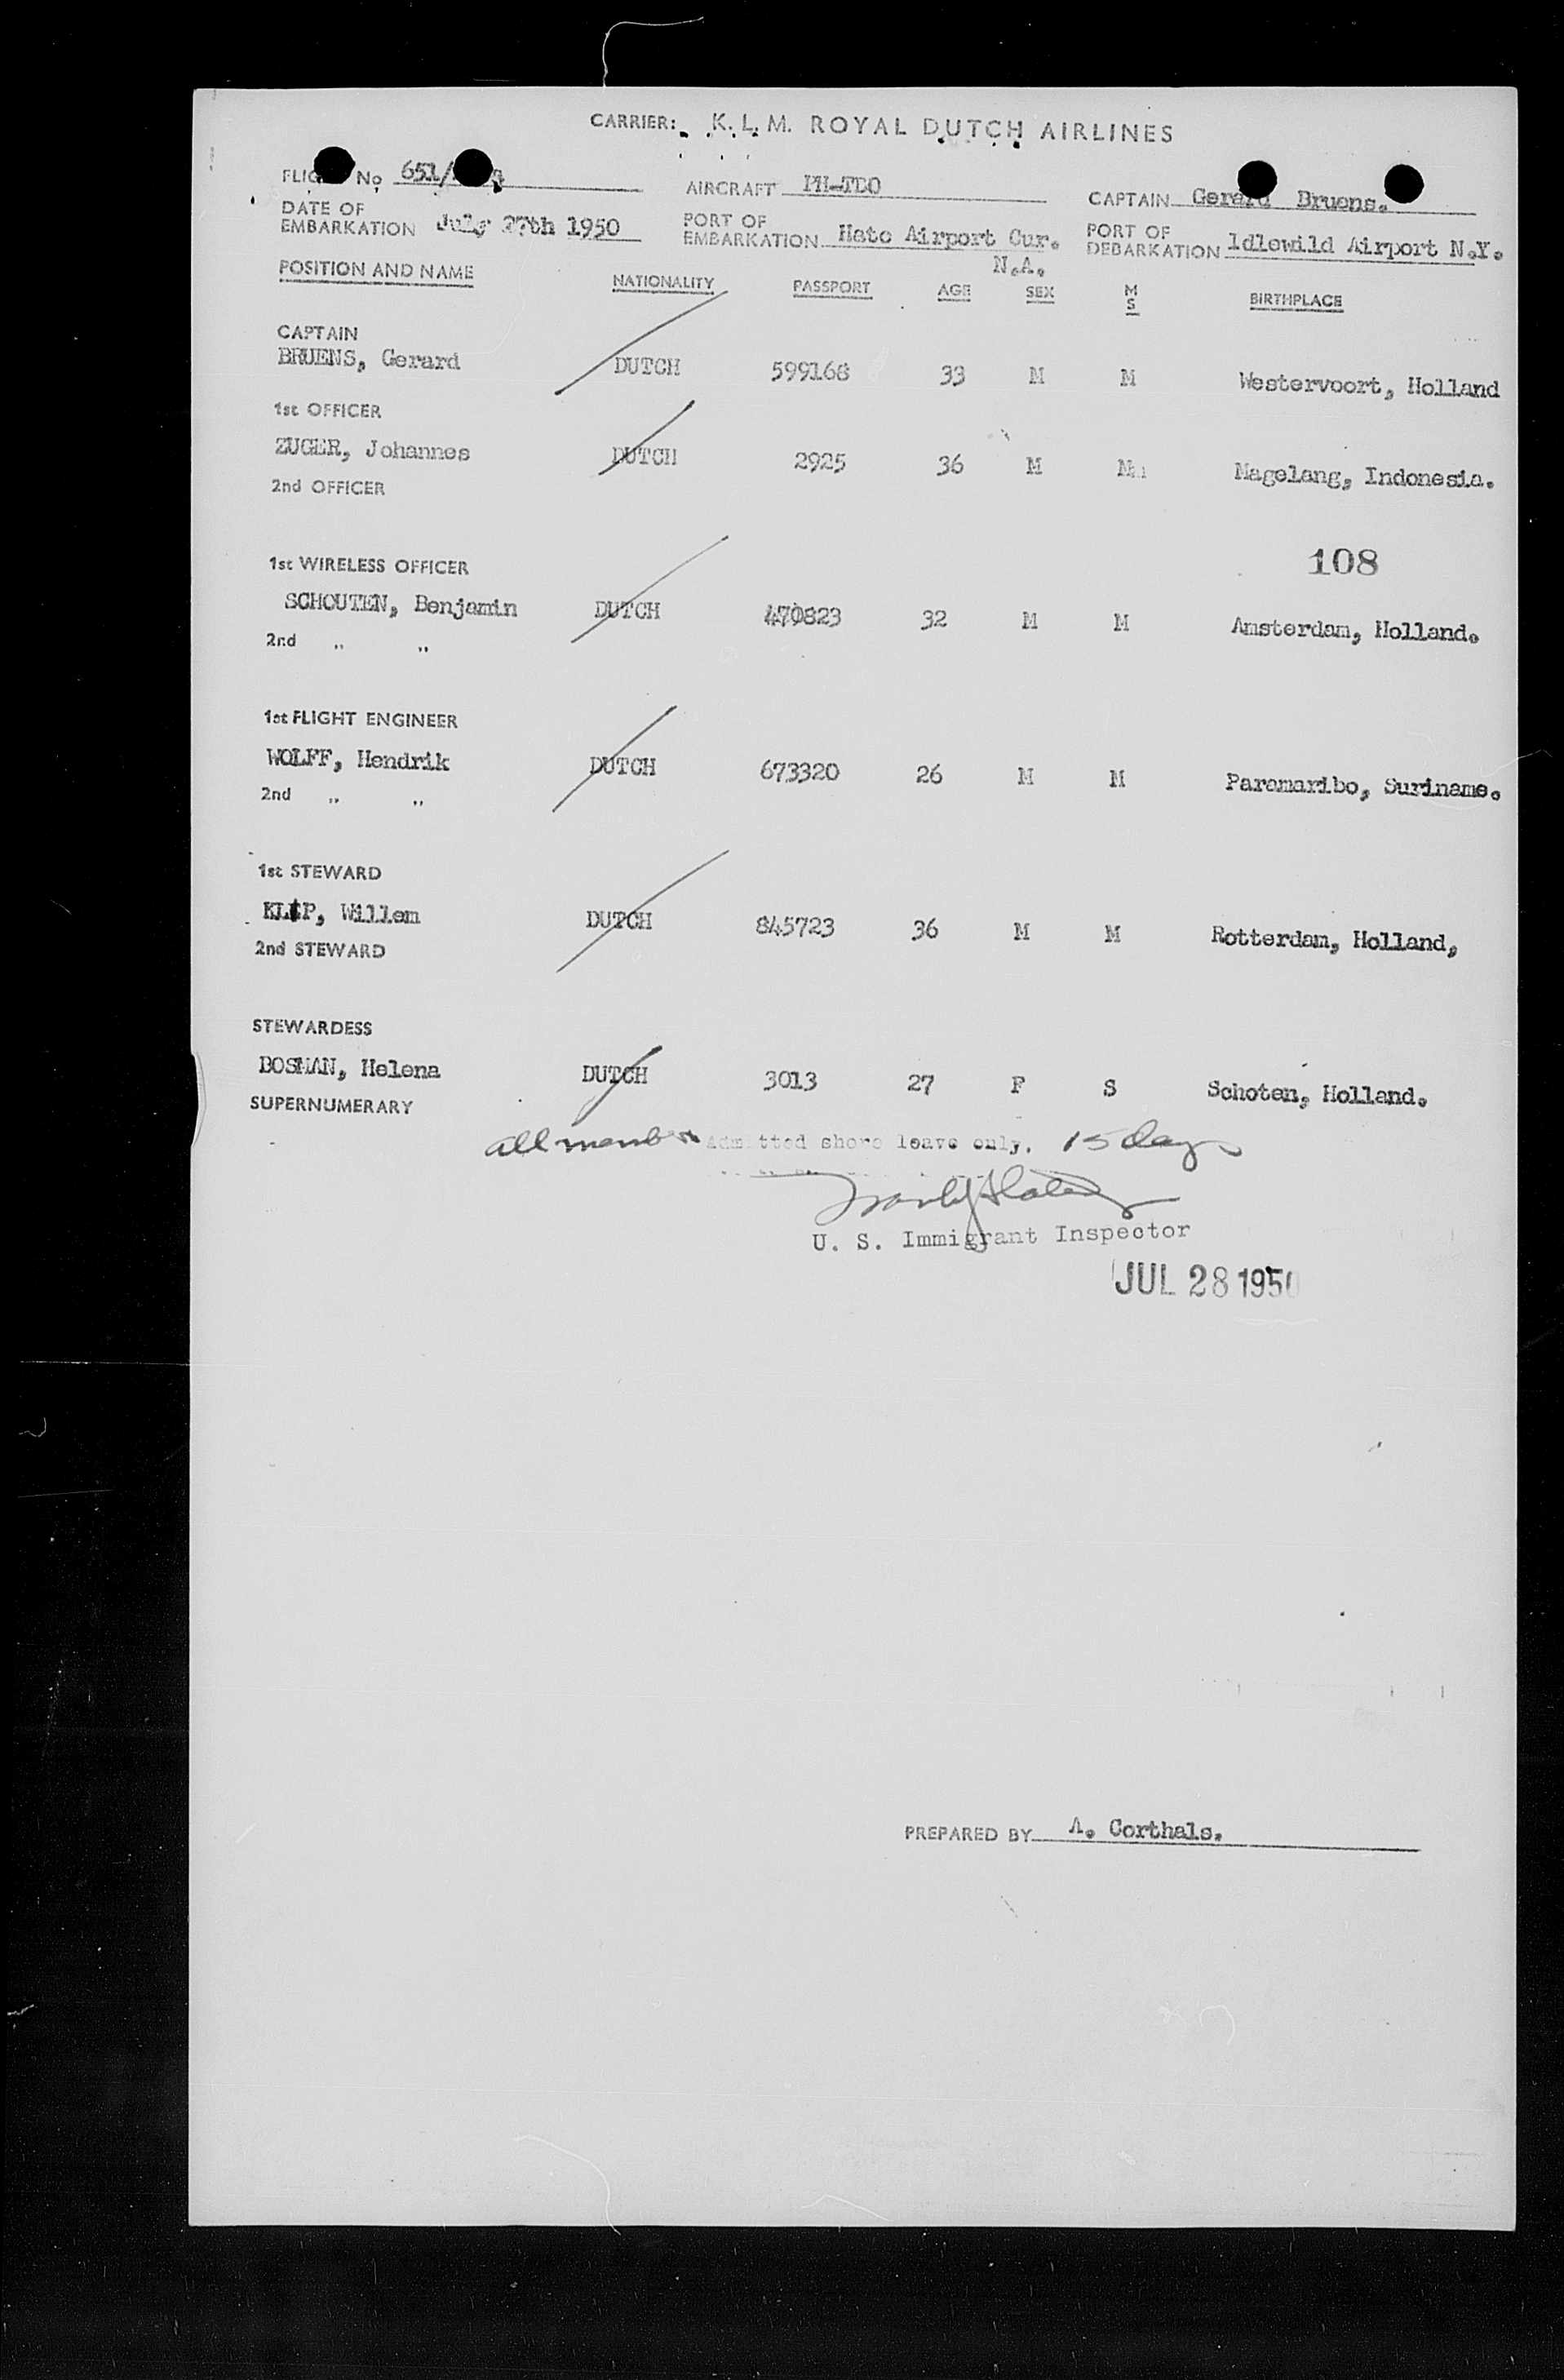 CARRIER: K. L. M. ROYAL DUTCH AIRLINES
No 651/
AIRCRAFT PH-TDO
CAPTAIN Gerard Bruens.
DATE OF EMBARKATION July 27th 1950
PORT OF EMBARKATION Hato Airport Cur. N.A.
PORT OF DEBARKATION Idlewild Airport N.Y.
POSITION AND NAME NATIONALITY PASSPORT AGE SEX M S BIRTHPLACE
CAPTAIN
BRUENS, Gerard DUTCH 599168 33 M M Westervoort, Holland
1st OFFICER
ZUGER, Johannes DUTCH 2925 36 M M Magelang, Indonesia.
2nd OFFICER
108
1st WIRELESS OFFICER
SCHOUTEN, Benjamin DUTCH 470823 32 M M Amsterdam, Holland.
2nd " "
1st FLIGHT ENGINEER
WOLFF, Hendrik DUTCH 673320 26 M M Paramaribo, Suriname.
2nd " "
1st STEWARD
Willem DUTCH 845723 36 M M Rotterdam, Holland,
2nd STEWARD
STEWARDESS
BOSMAN, Helena DUTCH 3013 27 F S Schoten, Holland.
SUPERNUMERARY
all members Admitted shore leave only. 15 days
U. S. Immigrant Inspector
JUL 28 1950
PREPARED BY A. Corthals.